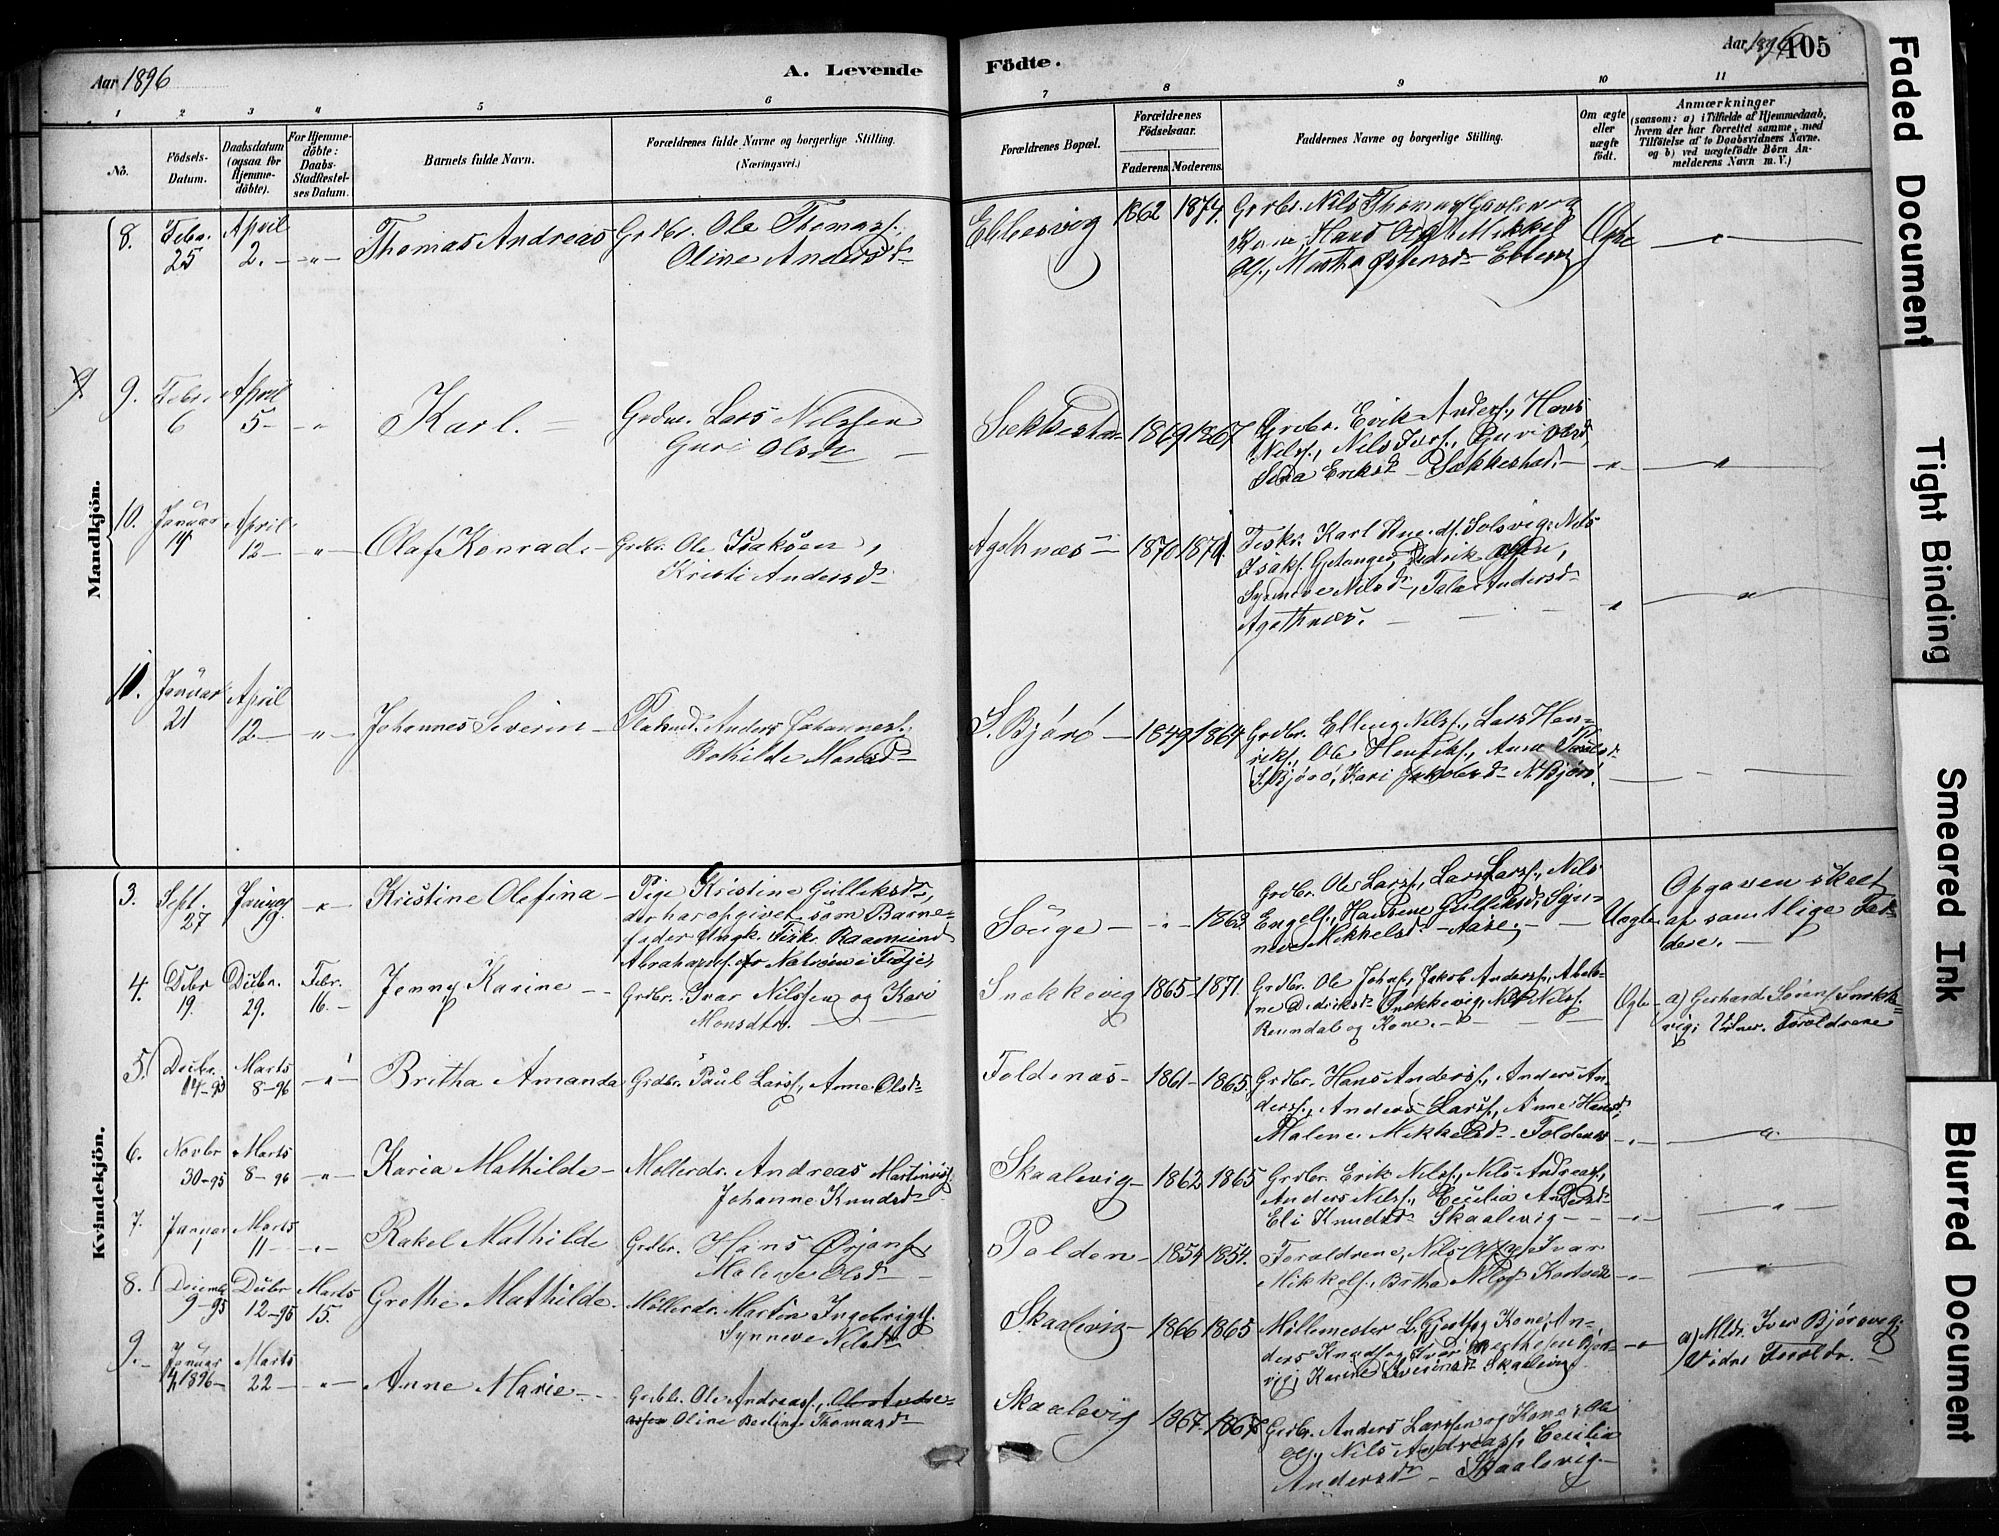 Aar 1896
A. Levende
Födte.
Aar 1896
105
1 2 3 4 5 6 7 8 9 10 11
No.
Födsels-
Datum.
Daabsdatum
(ogsaa for
Hjemme-
döbte).
For Hjemme-
döbte:
Daabs-
Stadfæstel-
ses Datum.
Barnets fulde Navn.
Forældrenes fulde Navne og borgerlige Stilling.
(Næringsvei.)
Forældrenes Bopæl.
Forældrenes
Födselsaar.
Faderens. Moderens.
Faddernes Navne og borgerlige Stilling.
Om ægte
eller
uægte
födt.
Anmærkninger
(saasom: a) i Tilfælde af Hjemmedaab,
hvem der har forrettet samme, med
Tilföielse af to Daabsvidners Navne.
og b) ved uægtefödte Börn An-
melderens Navn m. V.)
Mandkjön.
8. Febr. 25 April 2. Thomas Andreas Grdbr. Ole Thomass.
Oline Andersd.
Ebbesvig 1862 1874. Grdbr. Nils Thomass.
Kone, Hans Mikkel
Ols., Martha Østensd. Ebbesvig
Ægte
9. Febr. 6 April 5 Karl. Grdm. Lars Nilssen
Guri Olsdr
Sækkestad 1867 Grdbr. Erik Anders., Hans
Nils., Nils Ivers., Guri Olsd
Eriksd. Sækkestad.
10. Januar 14 April 12 Olaf Konrad. Grdbr. Ole Isaksen,
Kristi Andersd.
Agothnæs 1870 1871. Fiskr. Karl Solsvig, Nils
Isaks. Gjetanger, Olsen,
Synneve Nilsd., Andersd.
Agothnæs.
11. Januar 21 April 12 Johannes Severin Anders Johanness.
Bothilde Monsd
S. Bjørø 1849 1864 Grdbr. Elling Nils., Lars Hen-
riks., Ole Henriks., Anne
S. Bjørø, Kari Jakobsd. N. Bjørø.
Kvindekjön.
3. Sept. 27 Januar 19. Kristine Olefina Pige Kristine Gulliksdr.,
der har opgivet som Barne-
fader Ungk. Fisk. Raamund
Abrahams. i Fedje,
Souge 1863 Grdbr. Ole Lars., Lars Lars., Nils
Engels., Hansene Gulliksd., Syn-
neve Mikkelsd. Aase.
Uægte Opgaven skeet
af samtlige Fad-
dere.
4. Dcbr 19. Dcbr. 29. Febr. 16. Jenny Karine Grdbr. Ivar Nilssen og Kari
Monsdtr.
Snekkevig 1865 1871. Grdbr. Ole Johns., Jakob Anders., Abelo-
ne Didriksd. Snekkevig, Nils Nils.
Renndal og Kone.
Ægte a) Gerhard Sørens. Snekke-
vig; Vidner. Forældrene
5. Dcbr. 14-95 Marts 8-96 Britha Amanda Grdbr. Paul Lars., Anne Olsd.
Foldnæs 1861 1865. Grdbr. Hans Anders., Anders An-
ders., Anders Lars., Anne Hansd.
Malene Mikkelsd. Foldnæs
6. Novbr 30-95 Marts 8-96 Karia Mathilde Møllerdr. Andreas Martinus.
Johanne Knudsd.
Skaalevig 1862 1865 Grdbr. Erik Nils., Nils Andreas.,
Anders Nils., Cecilia Andersd
Eli Knudsd. Skaalevig
7. Januar 1 Marts 11 Rakel Mathilde Grdbr. Hans Ørjans.
Malene Olsd.
Polden 1854 1854. Forældrene, Nils Ivar
Mikkels., Britha Nilsd
8. Decemb. 9-95 Dcbr 12-95 Marts 15. Grethe Mathilde. Møllerdr. Martin Ingebrigts.
Synneve Nilsd.
Skaalevig 1866 1865 Møllemester L. Gjerths. Kone, An-
ders Knuds. og Ivar
Karine Skaalevig
a) Mldr. Iver Bjørøvig;
Vidner Forældr.
9. Januar 1896 Marts 22 Anne Marie Grdbr. Ole Andreass.,
Oline Berline Thomasd.
Skaalevig 1867 1867 Grdbr. Anders Larssen og Kone, Ole
Ols., Nils Andreass., Cecilia
Andersd. Skaalevig
Faded Document
Tight Binding
Smeared Ink
Blurred Document